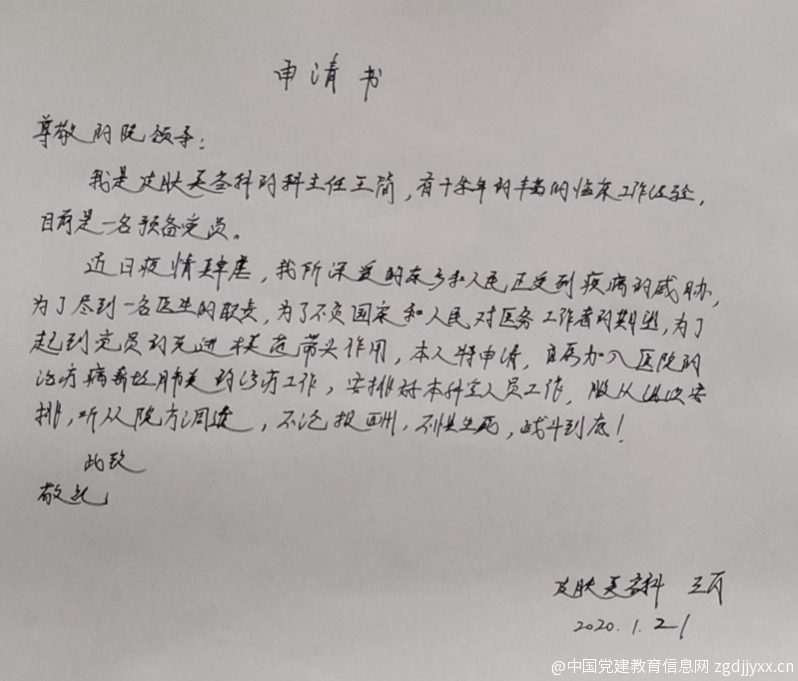 申请书
尊敬的院领导：
我是皮肤美容科的科主任王简，有十余年的丰富的临床工作经验，
目前是一名预备党员。
近日疫情肆虐，我所深爱的家乡和人民正受到疾病的威胁，
为了尽到一名医生的职责，为了不负国家和人民对医务工作者的期望，为了
起到党员的先进模范带头作用，本人特申请，自愿加入医院的
治疗病毒性肺炎的诊疗工作，安排好本科室人员工作，服从医院安
排，听从院方调遣，不论报酬，不惧生死，战斗到底！
此致
敬礼
皮肤美容科
2020.1.21
@中国党建教育信息网 zgdjjyxx.cn